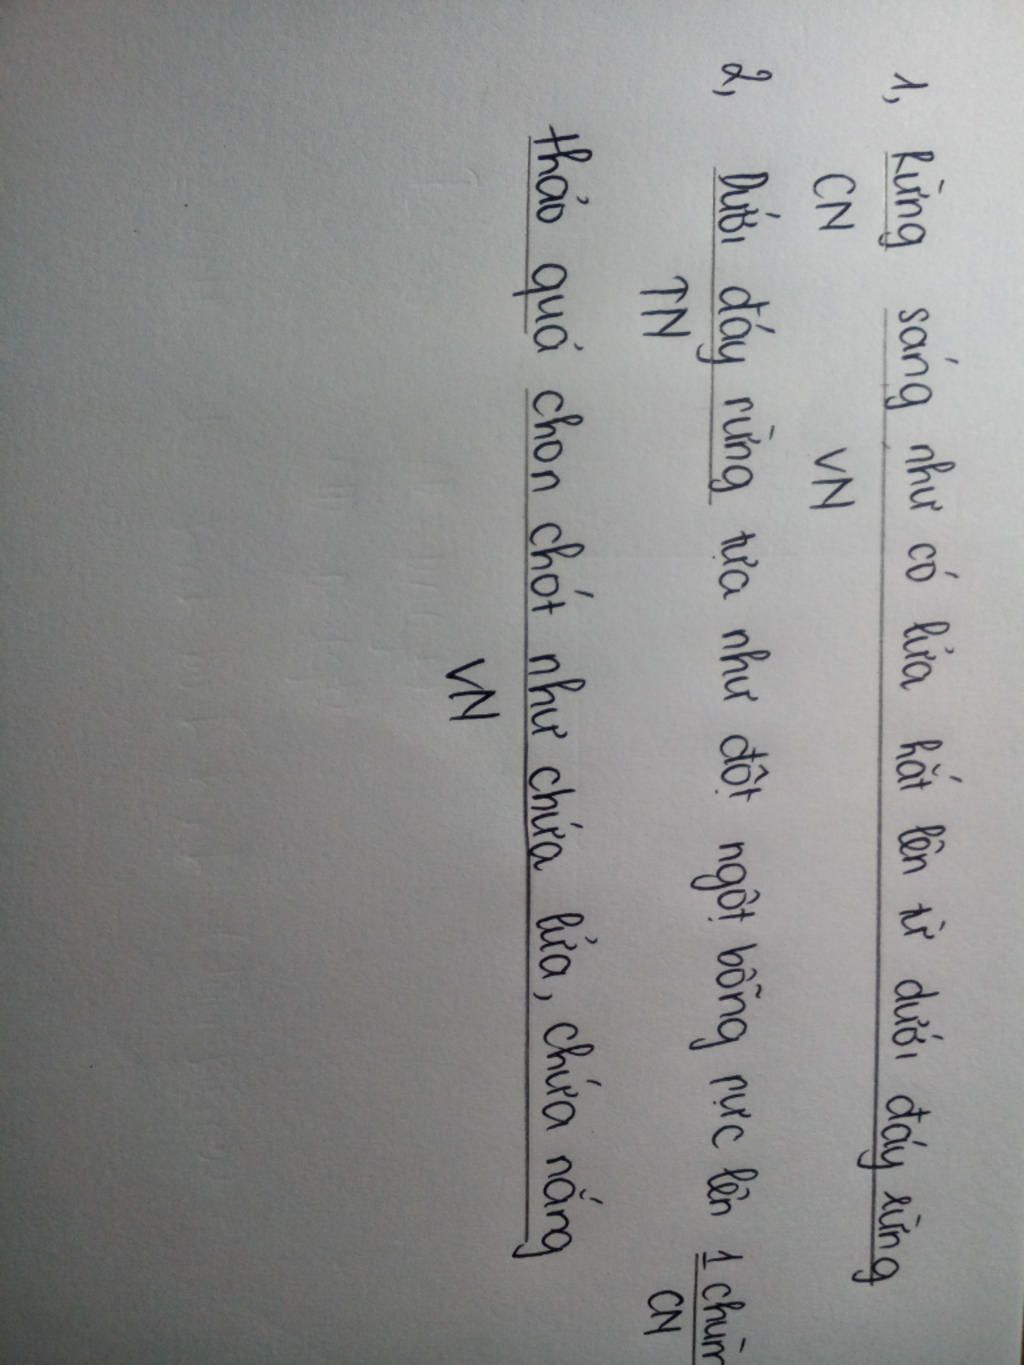 1, Rừng sáng như có lửa hắt lên từ dưới đáy rừng
CN VN
2, Dưới đáy rừng tựa như đột ngột bỗng rực lên 1 chùm
TN CN
thảo quả chon chót như chứa lửa, chứa nắng
VN